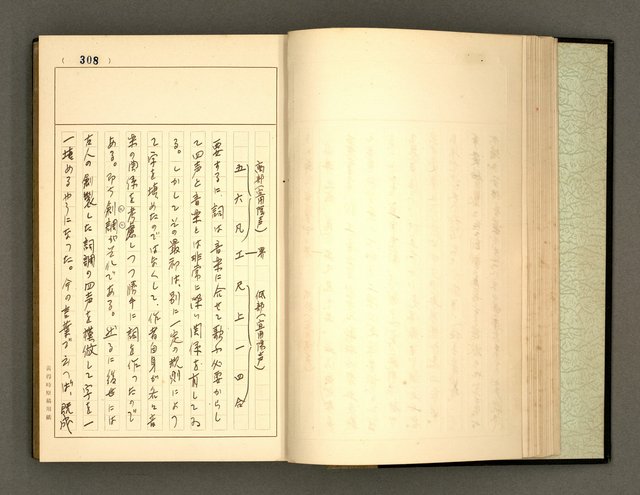 ( 308 )
高部(宜用陰声) 界 低部(宜用陽声)
五六凡工尺上一四合
要するに、詞は音楽に合せて歌ふ必要からし
て四声と音楽とは非常に深い関係を有してゐ
る。しかしてその最初は、別に一定の規則によつ
て字を填めたのではなくして、作者自身が各々音
楽の関係を考慮しつつ勝手に詞を作つたので
ある。即ち創調が至化である。然るに後世には
古人の創製した詞調の四声を摸倣して字を一
一填めるやうになつた。今の言葉で云へば、既成
黄得時原稿用紙